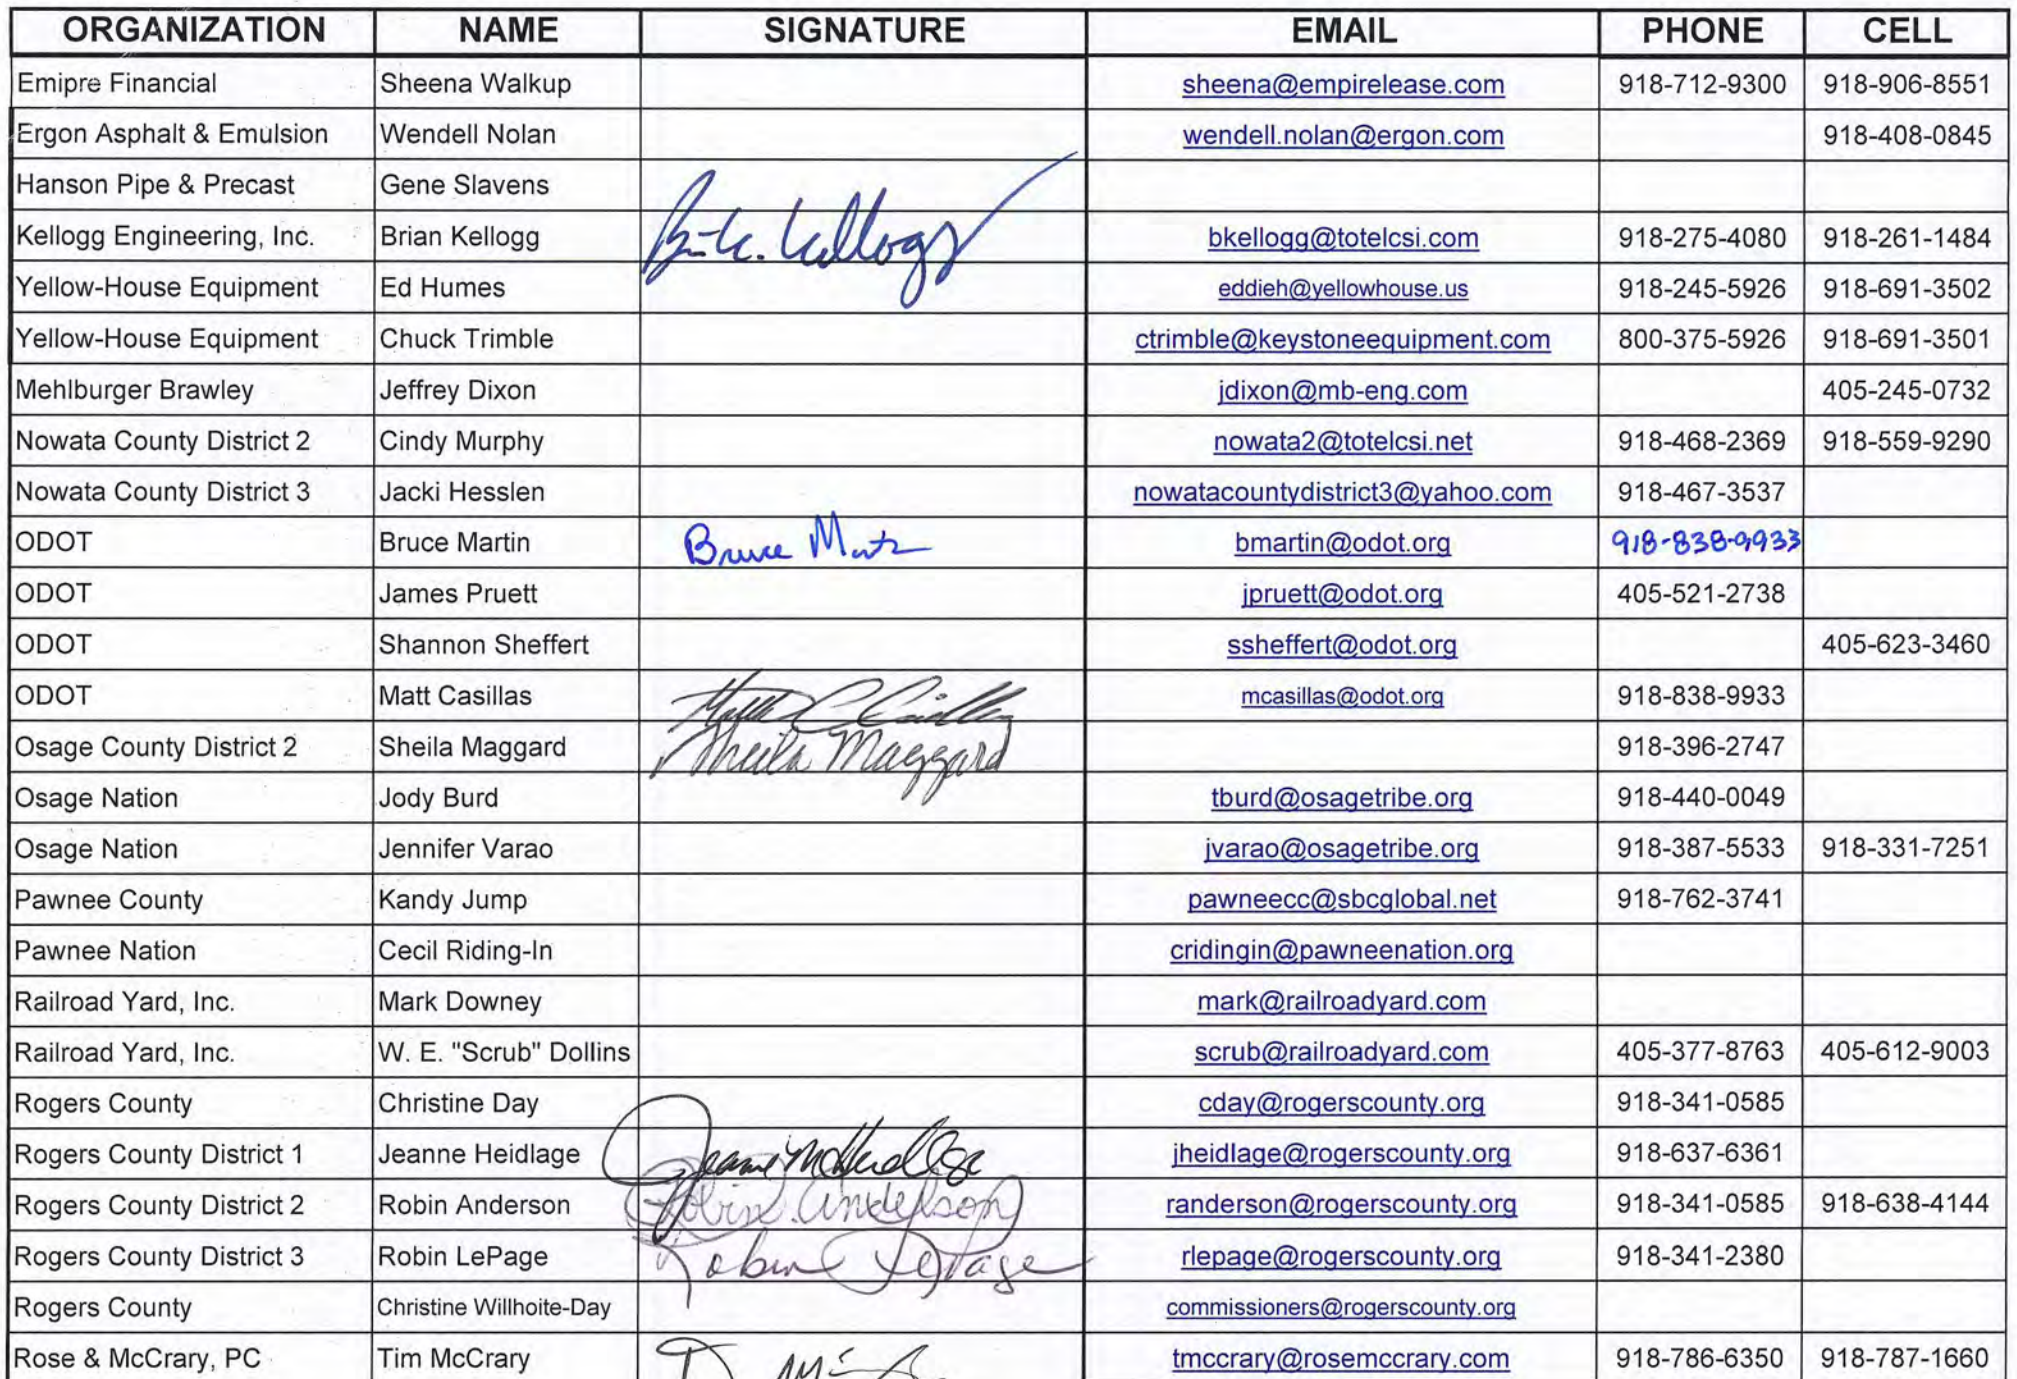 ORGANIZATION NAME SIGNATURE EMAIL PHONE CELL
Emipre Financial Sheena Walkup sheena@empirelease.com 918-712-9300 918-906-8551
Ergon Asphalt & Emulsion Wendell Nolan wendell.nolan@ergon.com 918-408-0845
Hanson Pipe & Precast Gene Slavens
Kellogg Engineering, Inc. Brian Kellogg Kellogg bkellogg@totelcsi.com 918-275-4080 918-261-1484
Yellow-House Equipment Ed Humes eddieh@yellowhouse.us 918-245-5926 918-691-3502
Yellow-House Equipment Chuck Trimble ctrimble@keystoneequipment.com 800-375-5926 918-691-3501
Mehlburger Brawley Jeffrey Dixon jdixon@mb-eng.com 405-245-0732
Nowata County District 2 Cindy Murphy nowata2@totelcsi.net 918-468-2369 918-559-9290
Nowata County District 3 Jacki Hesslen nowatacountydistrict3@yahoo.com 918-467-3537
ODOT Bruce Martin Bruce Martin bmartin@odot.org 918-838-9933
ODOT James Pruett jpruett@odot.org 405-521-2738
ODOT Shannon Sheffert ssheffert@odot.org 405-623-3460
ODOT Matt Casillas mcasillas@odot.org 918-838-9933
Osage County District 2 Sheila Maggard Sheila Maggard 918-396-2747
Osage Nation Jody Burd tburd@osagetribe.org 918-440-0049
Osage Nation Jennifer Varao jvarao@osagetribe.org 918-387-5533 918-331-7251
Pawnee County Kandy Jump pawneecc@sbcglobal.net 918-762-3741
Pawnee Nation Cecil Riding-In cridingin@pawneenation.org
Railroad Yard, Inc. Mark Downey mark@railroadyard.com
Railroad Yard, Inc. W. E. "Scrub" Dollins scrub@railroadyard.com 405-377-8763 405-612-9003
Rogers County Christine Day cday@rogerscounty.org 918-341-0585
Rogers County District 1 Jeanne Heidlage Jeanne M Heidlage jheidlage@rogerscounty.org 918-637-6361
Rogers County District 2 Robin Anderson Robin Anderson randerson@rogerscounty.org 918-341-0585 918-638-4144
Rogers County District 3 Robin LePage Robin LePage rlepage@rogerscounty.org 918-341-2380
Rogers County Christine Willhoite-Day commissioners@rogerscounty.org
Rose & McCrary, PC Tim McCrary tmccrary@rosemccrary.com 918-786-6350 918-787-1660